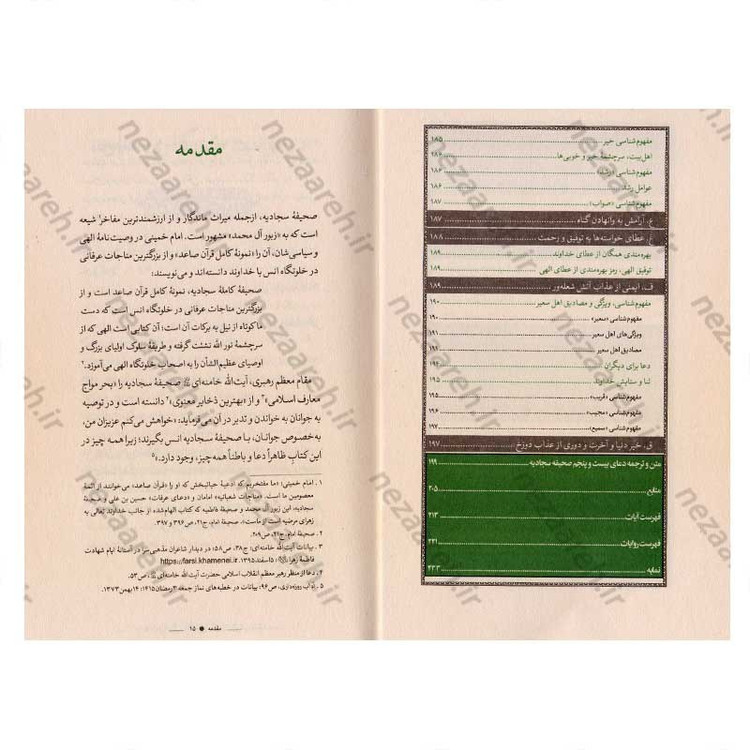 مفهوم‌شناسی خیر ۱۸۵
اهل‌بیت، سرچشمهٔ خیر و خوبی‌ها ۱۸۶
مفهوم‌شناسی «رشد» ۱۸۶
عوامل رشد ۱۸۶
مفهوم‌شناسی «صواب» ۱۸۷
ع. آرامش به وانهادن گناه ۱۸۷
غ. عطای خواسته‌ها به توفیق و رحمت ۱۸۸
بهره‌مندی همگان از عطای خداوند ۱۸۹
توفیق الهی، رمز بهره‌مندی از عطای الهی ۱۸۹
ف. ایمنی از عذاب آتش شعله‌ور ۱۸۹
مفهوم‌شناسی، ویژگی و مصادیق اهل سعیر ۱۹۰
مفهوم‌شناسی «سعیر» ۱۹۰
ویژگی‌های اهل سعیر ۱۹۱
مصادیق اهل سعیر ۱۹۱
دعا برای دیگران
ثنا و ستایش خداوند ۱۹۵
مفهوم‌شناسی «قریب» ۱۹۵
مفهوم‌شناسی «مجیب» ۱۹۶
مفهوم‌شناسی «سمیع» ۱۹۷
ق. خیر دنیا و آخرت و دوری از عذاب دوزخ ۱۹۷
متن و ترجمه دعای بیست و پنجم صحیفه سجادیه ۱۹۹
منابع ۲۰۵
فهرست آیات ۲۱۳
فهرست روایات ۲۲۱
نمایه ۲۳۳
مقدمه
صحیفهٔ سجادیه، ازجمله میراث ماندگار و از ارزشمندترین مفاخر شیعه
است که به «زبور آل محمد» مشهور است. امام خمینی در وصیت‌نامهٔ الهی
و سیاسی‌شان، آن را «نمونهٔ کامل قرآن صاعد» و از بزرگترین مناجات عرفانی
در خلوتگاه انس با خداوند دانسته‌اند و می‌نویسند:
صحیفهٔ کاملهٔ سجادیه، نمونهٔ کامل قرآن صاعد است و از
بزرگترین مناجات عرفانی در خلوتگاه انس است که دست
ما کوتاه از نیل به برکات آن است؛ آن کتابی است الهی که از
سرچشمهٔ نور الله نشئت گرفته و طریقهٔ سلوک اولیای بزرگ و
اوصیای عظیم‌الشأن را به اصحاب خلوتگاه الهی می‌آموزد.²
مقام معظم رهبری، آیت‌الله خامنه‌ای صحیفهٔ سجادیه را «بحر مواج
معارف اسلامی»³ و از «بهترین ذخایر معنوی»⁴ دانسته است و در توصیه
به جوانان به خواندن و تدبر در آن می‌فرماید: «خواهش می‌کنم عزیزان من،
به‌خصوص جوانان، با صحیفهٔ سجادیه انس بگیرند؛ زیرا همه چیز در
این کتابِ ظاهراً دعا و باطناً همه‌چیز، وجود دارد.»⁵
۱. امام خمینی: «ما مفتخریم که ادعیهٔ حیاتبخش که او را «قرآن صاعد» می‌خوانند از ائمهٔ
معصومین ما است. «مناجات شعبانیه» امامان و «دعای عرفات» حسین بن علی و صحیفهٔ
سجادیه، این زبور آل محمد و صحیفهٔ فاطمیه که کتاب الهام‌شده از جانب خداوند تعالی به
زهرای مرضیه است از ماست». صحیفهٔ امام، ج۲۱، ص۳۹۶ و ۳۹۷.
۲. صحیفهٔ امام، ج۲۱، ص۲۰۹.
۳. بیانات آیت‌الله خامنه‌ای؛ ج۳۸، ص۵۸، در دیدار شاعران مذهبی‌سرا در آستانهٔ ایام شهادت
فاطمهٔ زهرا؛ ۵اسفند۱۳۹۵، https://farsi.khamenei.ir.
۴. دعا از منظر رهبر معظم انقلاب اسلامی حضرت آیت‌الله خامنه‌ای، ص۵۳.
۵. آداب روزه‌داری، ص۹۶؛ بیانات در خطبه‌های نماز جمعه ۳رمضان۱۴۱۵؛ ۱۴بهمن۱۳۷۳.
مقدمه ● ۱۵
nezaareh.ir